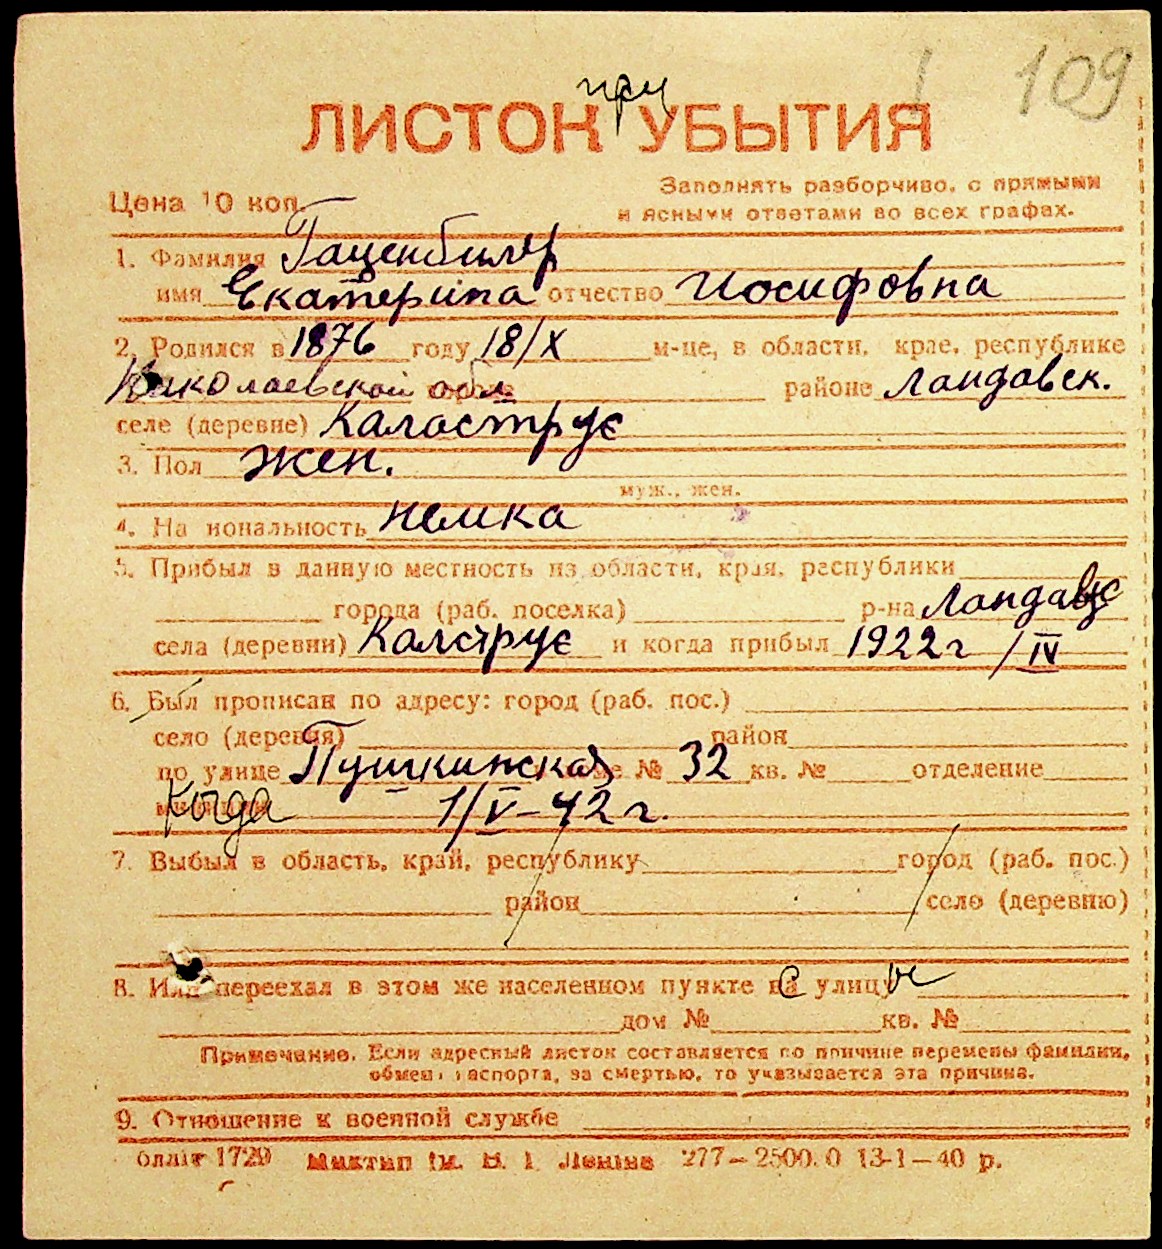 109
при
ЛИСТОК УБЫТИЯ
Цена 10 коп.
Заполнять разборчиво, с прямыми
и ясными ответами во всех графах.
1. Фамилия Гаценбилер
имя Екатерина отчество Иосифовна
2. Родился в 1876 году 18/X м-це, в области, крае, республике
Николаевской обл. районе Ландавск.
селе (деревне) Каластрує
3. Пол жен.
муж., жен.
4. На иональность немка
5. Прибыл в данную местность из области, края, республики
города (раб. поселка) р-на
села (деревни) Калструє и когда прибыл 1922 г /IV
6. Был прописан по адресу: город (раб. пос.)
село (деревня) район
по улице Пушкинская № 32 кв. № отделение
Когда 1/V-42 г.
7. Выбыл в область, край, республику город (раб. пос.)
район село (деревню)
8. Или переехал в этом же населенном пункте с улицы
дом № кв. №
Примечание. Если адресный листок составляется по причине перемены фамилии,
обмена паспорта, за смертью, то указывается эта причина.
9. Отношение к военной службе
блліт 1729 Миктип ім. В. І. Леніна 277—2500.0 13-1—40 р.